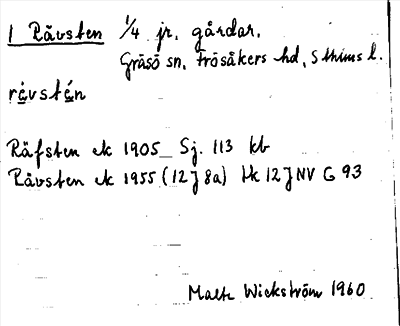 1 Rävsten 1/4 jr. gårdar.
Gräsö sn, Frösåkers hd, Sthlms l.
révstén
Räfsten ek 1905 Sj. 113 kb
Rävsten ek 1955 (12J 8a) Hk 12J NV G 93
Malte Wickström 1960